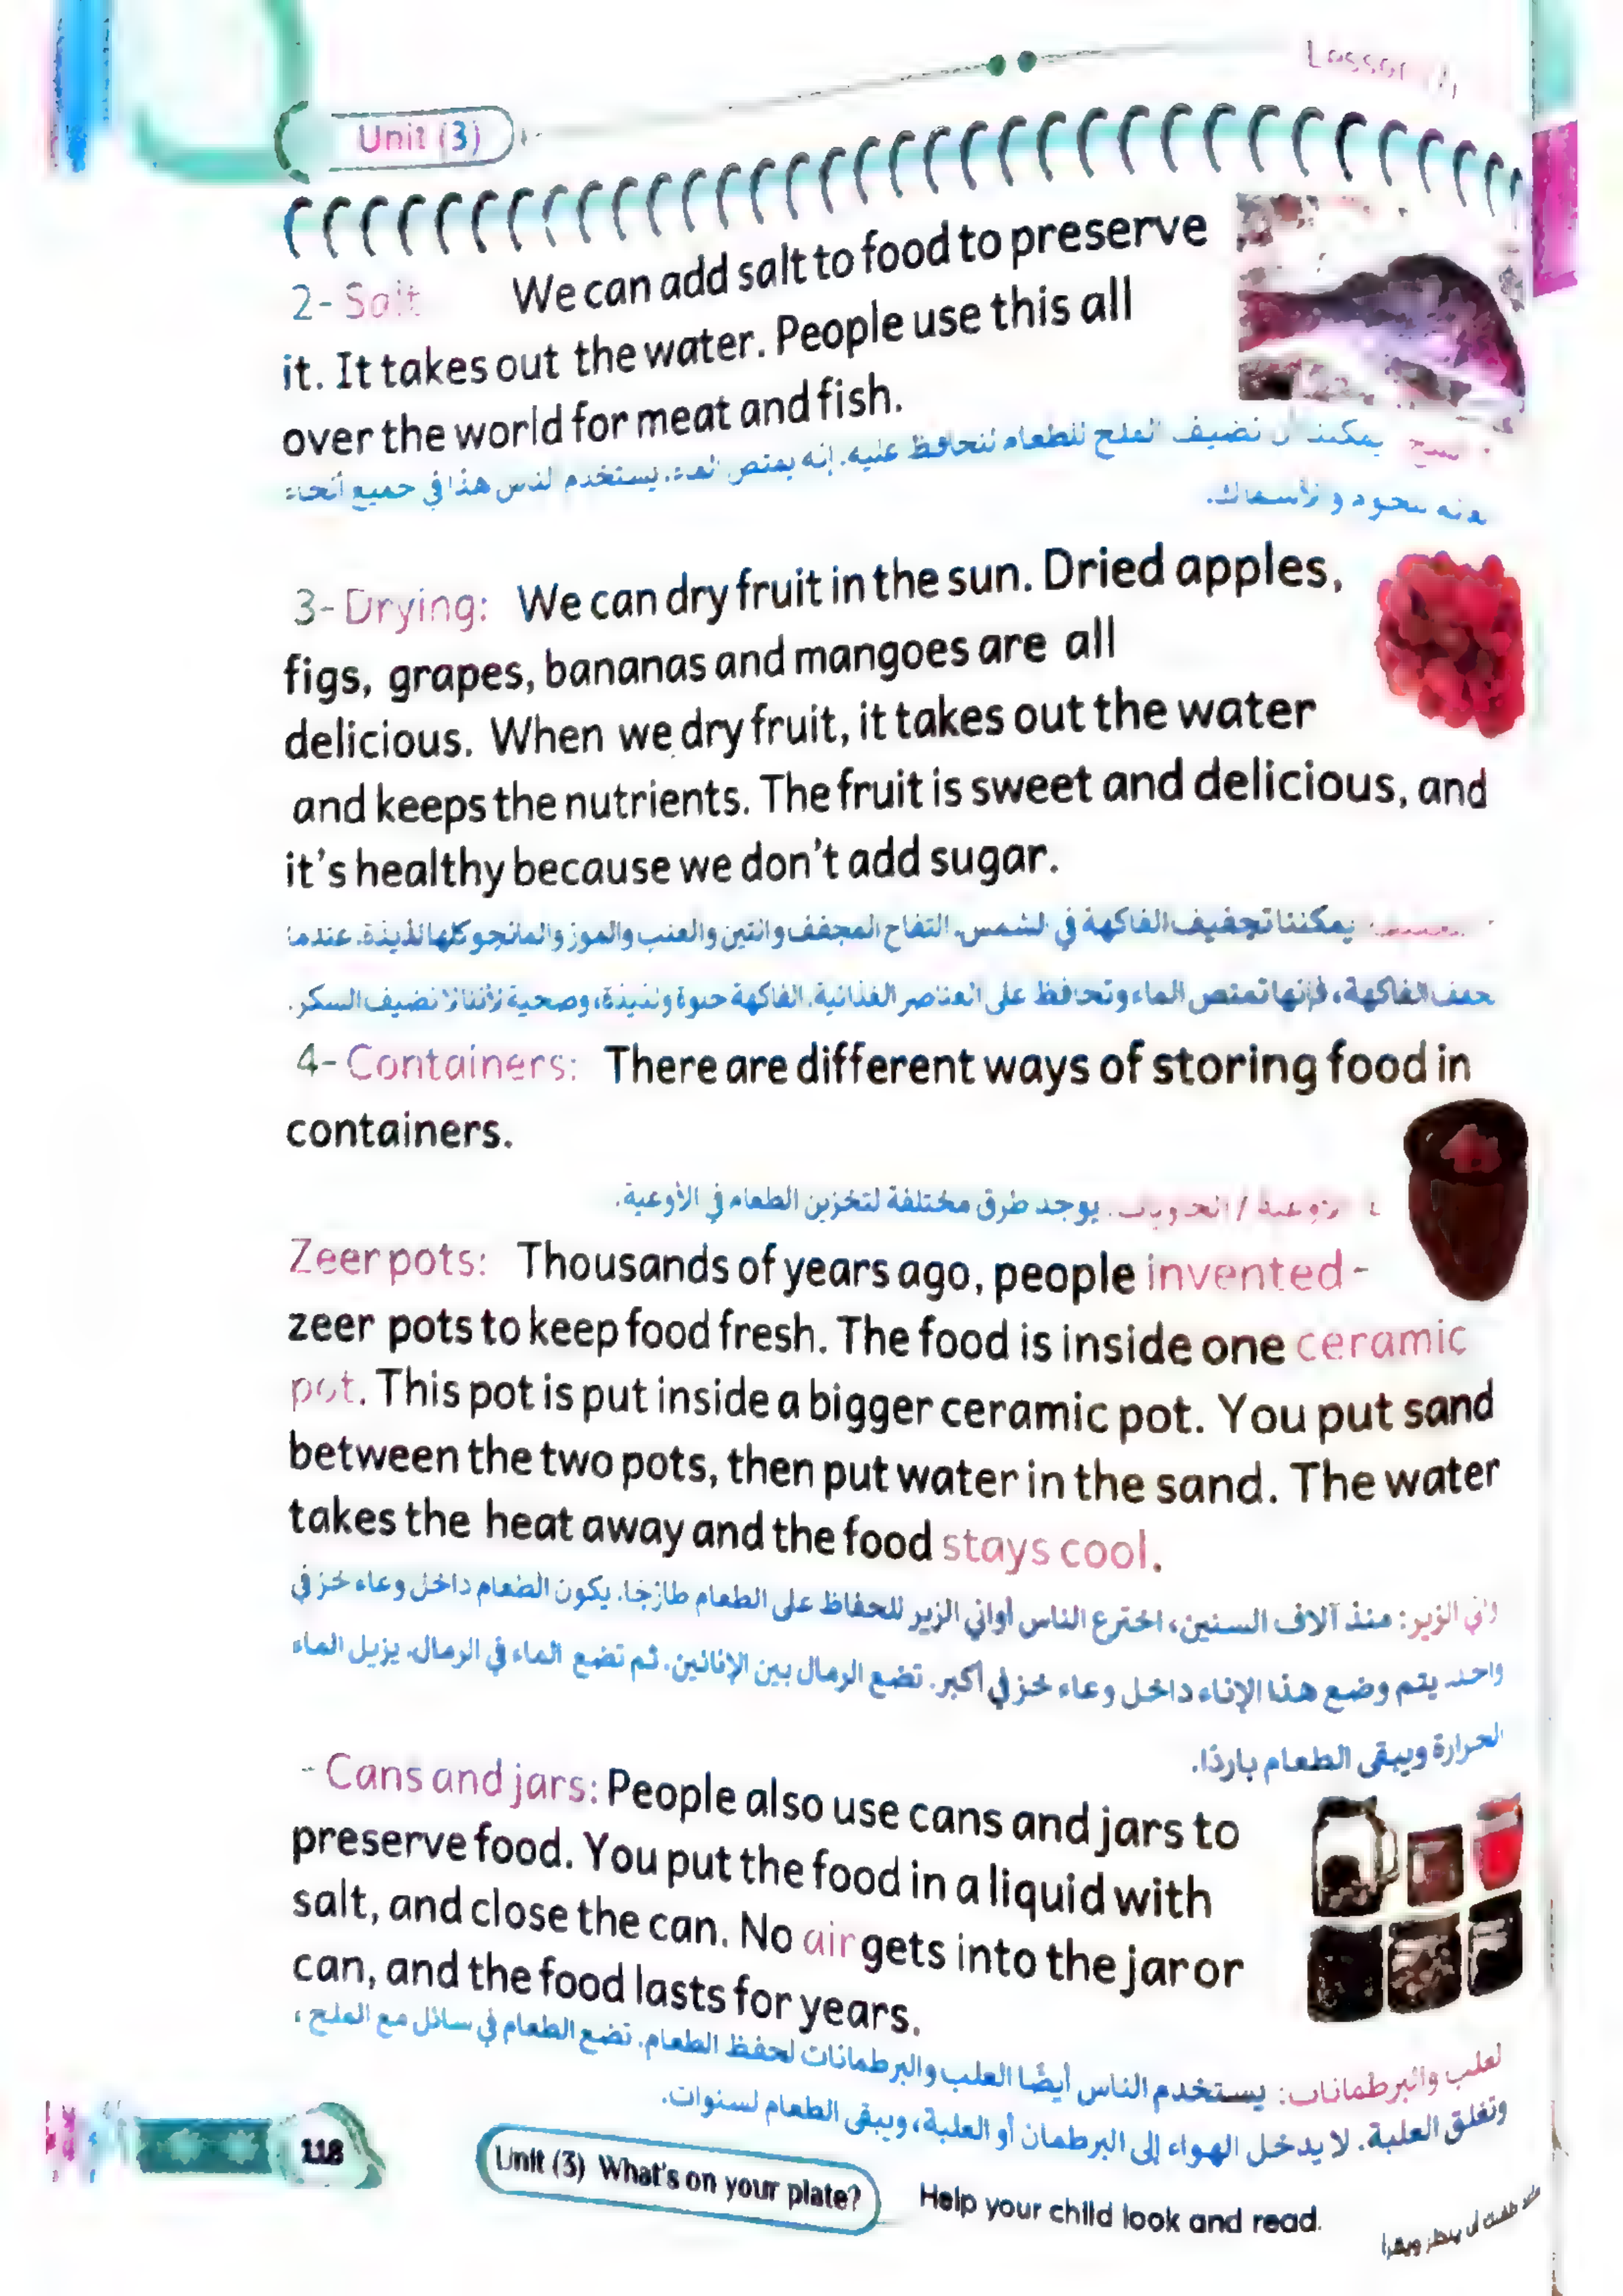 Unit (3)
2- Salt We can add salt to food to preserve
it. It takes out the water. People use this all
over the world for meat and fish.
يمكننا أن نضيف الملح للطعام لنحافظ عليه. إنه يمتص الماء. يستخدم الناس هذا في جميع أنحاء
3- Drying: We can dry fruit in the sun. Dried apples,
figs, grapes, bananas and mangoes are all
delicious. When we dry fruit, it takes out the water
and keeps the nutrients. The fruit is sweet and delicious, and
it's healthy because we don't add sugar.
يمكننا تجفيف الفاكهة في الشمس. التفاح المجفف والتين والعنب والموز والمانجو كلها لذيذة. عندما
الفاكهة، فإنها تمتص الماء وتحافظ على العناصر الغذائية. الفاكهة حلوة ولذيذة، وصحية لأننا لا نضيف السكر.
4- Containers: There are different ways of storing food in
containers.
يوجد طرق مختلفة لتخزين الطعام في الأوعية.
Zeer pots: Thousands of years ago, people invented -
zeer pots to keep food fresh. The food is inside one ceramic
pot. This pot is put inside a bigger ceramic pot. You put sand
between the two pots, then put water in the sand. The water
takes the heat away and the food stays cool.
الزير: منذ آلاف السنين، اخترع الناس أواني الزير للحفاظ على الطعام طازجًا. يكون الطعام داخل وعاء خزفي
واحد. يتم وضع هذا الإناء داخل وعاء خزفي أكبر. تضع الرمال بين الإنائين. ثم تضع الماء في الرمال. يزيل الماء
الحرارة ويبقى الطعام باردًا.
- Cans and jars: People also use cans and jars to
preserve food. You put the food in a liquid with
salt, and close the can. No air gets into the jar or
can, and the food lasts for years.
لعلب والبرطمانات: يستخدم الناس أيضًا العلب والبرطمانات لحفظ الطعام. تضع الطعام في سائل مع الملح ،
وتغلق العلبة. لا يدخل الهواء إلى البرطمان أو العلبة، ويبقى الطعام لسنوات.
118
Unit (3) What's on your plate?
Help your child look and read.